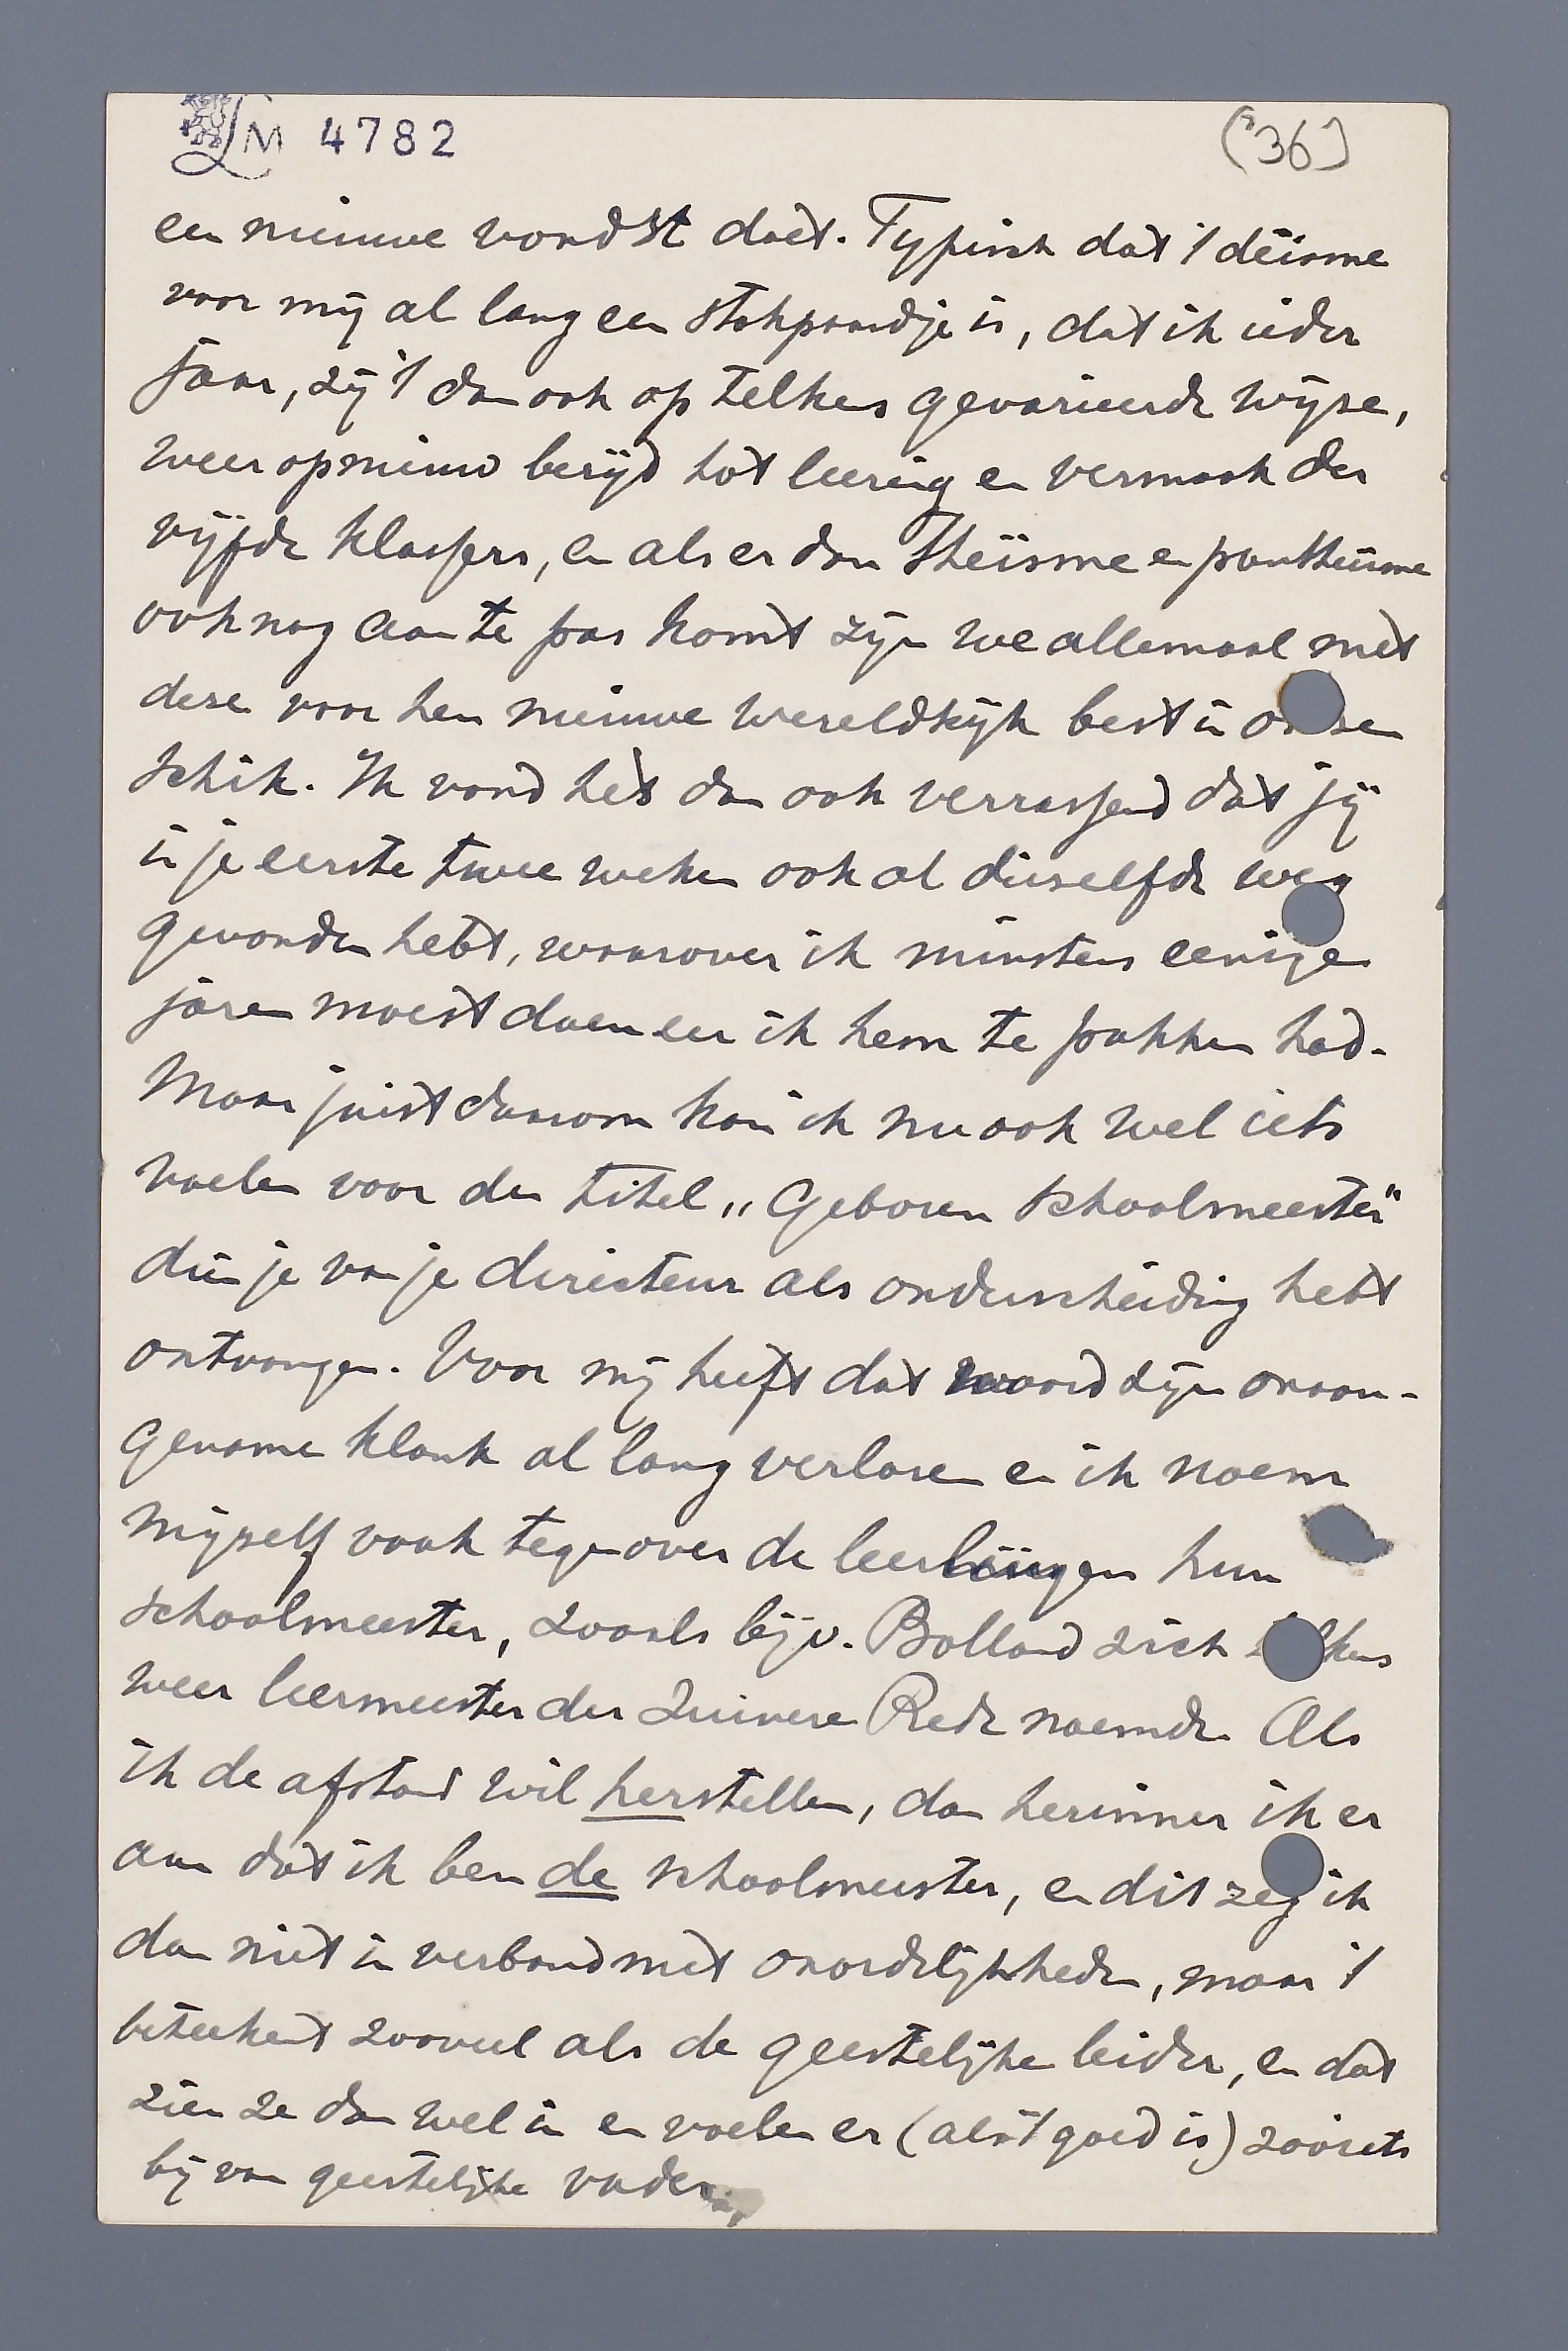 LM 4782
('36)
een nieuwe vondst doet. Typisch dat 't deïsme
voor mij al lang een stokpaardje is, dat ik ieder
jaar, zij 't dan ook op telkens gevarieerde wijze,
weer opnieuw berijd tot leering en vermaak der
vijfde klassers, en als er dan theïsme en pantheïsme
ook nog aan te pas komt zijn we allemaal met
deze voor hen nieuwe wereldkijk best in onzen
schik. Ik vond het dan ook verrassend dat jij
in je eerste twee weken ook al dienzelfde weg
gevonden hebt, waarover ik minstens eenige
jaren moest doen eer ik hem te pakken had.
Maar juist daarom kan ik nu ook wel iets
voelen voor den titel „Geboren schoolmeester"
dien je van je directeur als onderscheiding hebt
ontvangen. Voor mij heeft dat woord zijn onaan-
gename klank al lang verloren en ik noem
mijzelf vaak tegenover de leerlingen hun
schoolmeester, zooals bijv. Bolland zich telkens
weer leermeester der Zuivere Rede noemde. Als
ik de afstand wil herstellen, dan herinner ik er
aan dat ik ben de schoolmeester, en dit zeg ik
dan niet in verband met onordelijkheden, maar 't
beteekent zooveel als de geestelijke leider, en dat
zien ze dan wel in en voelen er (als 't goed is) zooiets
bij van geestelijke vader.